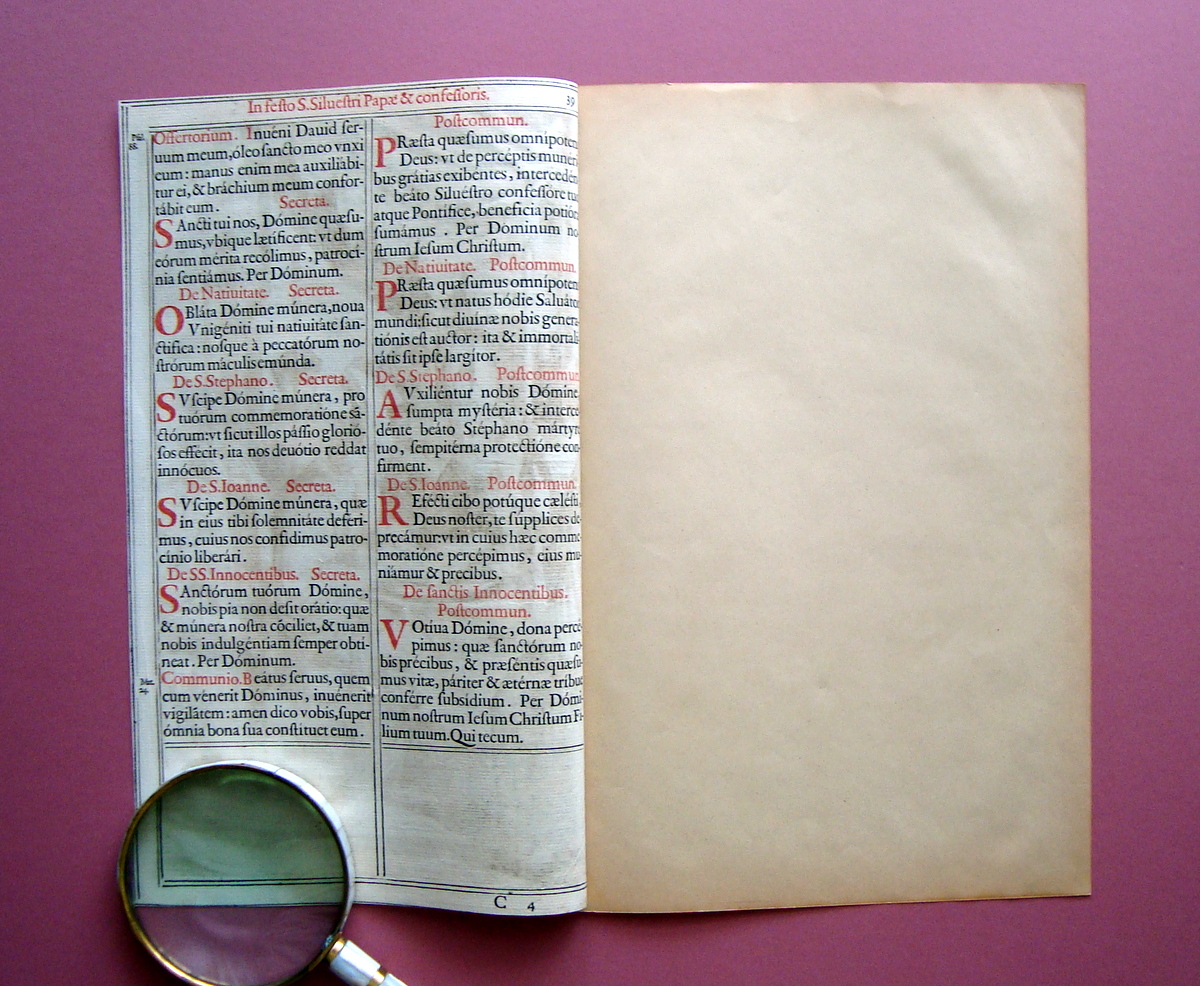 In festo S. Siluestri Papæ & confessoris. 39
Offertorium. Inuéni Dauid ser-
uum meum, óleo sancto meo vnxi
eum: manus enim mea auxiliábi-
tur ei, & bráchium meum confor-
tábit eum. Secreta.
SAncti tui nos, Dómine quæsu-
mus, vbique lætíficent: vt dum
eórum mérita recólimus, patrocí-
nia sentiámus. Per Dóminum.
De Natiuitate. Secreta.
OBláta Dómine múnera, noua
Vnigéniti tui natiuitáte san-
ctífica: nosque à peccatórum no-
strórum máculis emúnda.
De S. Stephano. Secreta.
SVscipe Dómine múnera, pro
tuórum commemoratióne sā-
ctórum: vt sicut illos pássio glorió-
sos effécit, ita nos deuótio reddat
innócuos.
De S. Ioanne. Secreta.
SVscipe Dómine múnera, quæ
in eius tibi solemnitáte deféri-
mus, cuius nos confídimus patro-
cínio liberári.
De SS. Innocentibus. Secreta.
SAnctórum tuórum Dómine,
nobis pia non desit orátio: quæ
& múnera nostra cōcíliet, & tuam
nobis indulgéntiam semper obtí-
neat. Per Dóminum.
Communio. Beátus seruus, quem
cum vénerit Dóminus, inuénerit
vigilātem: amen dico vobis, super
ómnia bona sua constítuet eum.
Postcommun.
PRæsta quæsumus omnípoten
Deus: vt de percéptis muner
bus grátias exibéntes, intercedén
te beáto Siluéstro confessóre tu
atque Pontífice, beneficia potiór
sumámus. Per Dominum no
strum Iesum Christum.
De Natiuitate. Postcommun.
PRæsta quæsumus omnípoten
Deus: vt natus hódie Saluátor
mundi: sicut diuínæ nobis genera
tiónis est auctor: ita & immortali
tátis sit ipse largítor.
De S. Stephano. Postcommun
AVxiliéntur nobis Dómine
sumpta mystéria: & interce
dénte beáto Stéphano mártyre
tuo, sempitérna protectióne con
firment.
De S. Ioanne. Postcommun.
REfécti cibo potúque cælésti
Deus noster, te súpplices de
precámur: vt in cuius hæc comme
moratióne percépimus, eius mu
niámur & precibus.
De sanctis Innocentibus.
Postcommun.
VOtiua Dómine, dona percé
pimus: quæ sanctórum no-
bis précibus, & præséntis quæsu-
mus vitæ, páriter & ætérnæ tríbue
conférre subsídium. Per Dómi-
num nostrum Iesum Christum Fí-
lium tuum. Qui tecum.
C 4